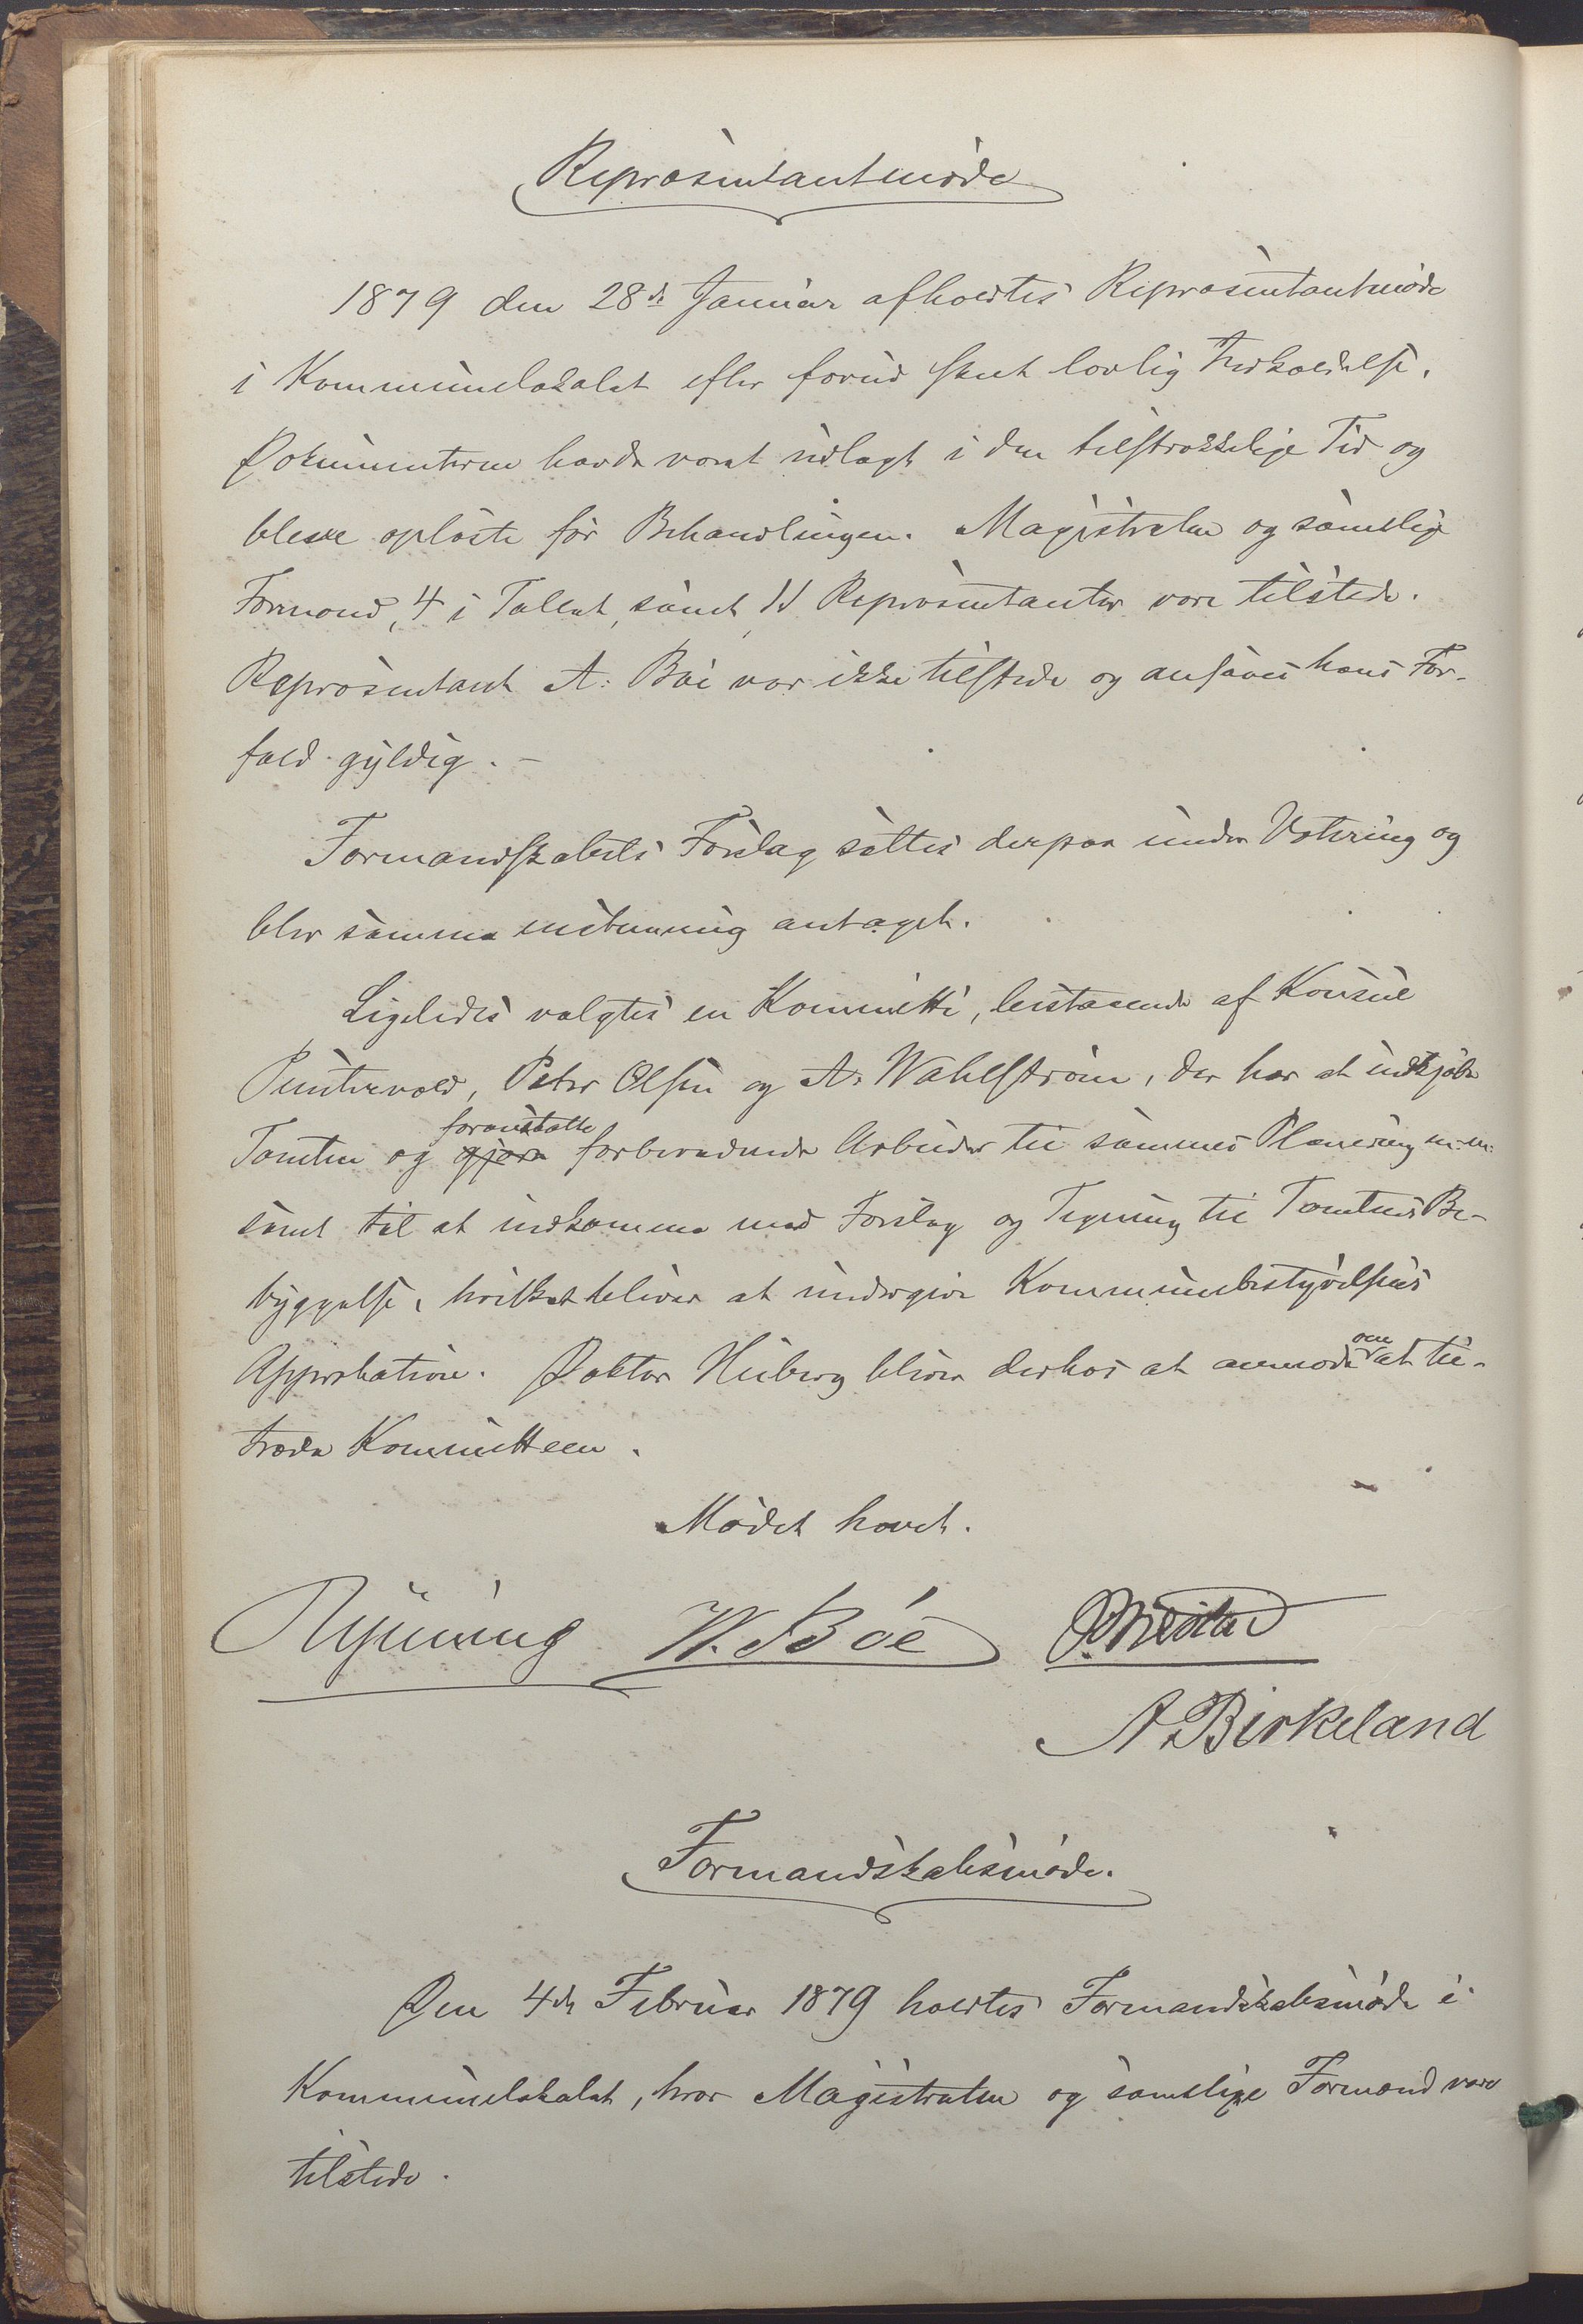 Repræsentantmøde
1879 den 28de Januar afholdtes Repræsentantmøde
i Kommunelokalet efter forud skeet lovlig Indkaldelse.
Dokumenterne havde været udlagt i den tilstrækkelige Tid og
bleve oplæste før Behandlingen. Magistraten og samtlige
Formænd, 4 i Tallet, samt 11 Repræsentanter vare tilstede.
Repræsentant A. Bøe var ikke tilstede og ansaaes hans For-
fald gyldig. -
Formandskabets Forslag sattes derpaa under Votering og
blev samme enstemmig antaget.
Ligeledes valgtes en Kommitté, bestaaende af Konsul
Puntervold, Peter Olsen og A. Wahlstrøm, der har at indkjøbe
Tomten og gjøre foranstalte forberedende Arbeider til sammes Planering m.m.
samt til at indkomme med Forslag og Tegning til Tomtens Be-
byggelse, hvilket bliver at undergive Kommunebestyrelsens
Approbation. Doktor Heiberg bliver derhos at anmode om at til-
træde Kommitteen.
Mødet hævet.
Rynning W. Bøe
A. Birkeland
Formandskabsmøde.
Den 4de Februar 1879 holdtes Formandskabsmøde i
Kommunelokalet, hvor Magistraten og samtlige Formænd vare
tilstede.